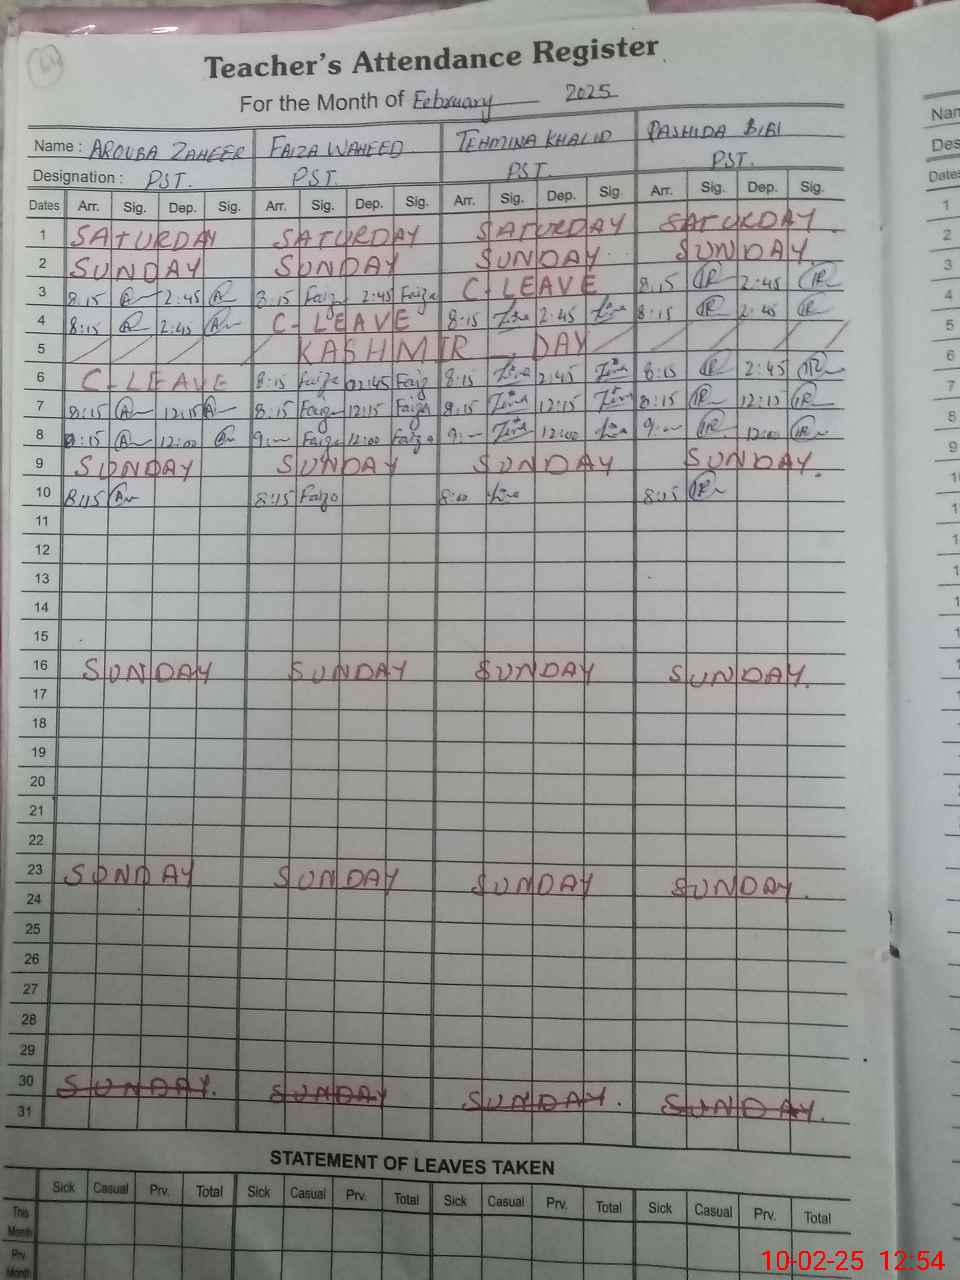 64
Teacher's Attendance Register
For the Month of February 2025
Name : AROUBA ZAHEER FAIZA WAHEED TEHMINA KHALID RASHIDA BIBI
Designation : PST. PST. PST. PST.
Dates Arr. Sig. Dep. Sig. Arr. Sig. Dep. Sig. Arr. Sig. Dep. Sig. Arr. Sig. Dep. Sig.
1 SATURDAY SATURDAY SATURDAY SATURDAY
2 SUNDAY SUNDAY SUNDAY SUNDAY
3 8:15 2:45 8:15 Faiza 2:45 Faiza C-LEAVE 8:15 2:45
4 8:15 2:45 C-LEAVE 8:15 2:45 8:15 2:45
5 KASHMIR DAY
6 C-LEAVE 8:15 Faiza 02:45 Faiza 8:15 2:45 8:15 2:45
7 8:15 12:15 8:15 Faiza 12:15 Faiza 8:15 12:15 8:15 12:15
8 8:15 12:00 9:— Faiza 12:00 Faiza 9:— 12:00 9:— 12:00
9 SUNDAY SUNDAY SUNDAY SUNDAY.
10 8:15 8:15 Faiza 8:00 8:15
11
12
13
14
15
16 SUNDAY SUNDAY SUNDAY SUNDAY.
17
18
19
20
21
22
23 SUNDAY SUNDAY SUNDAY SUNDAY.
24
25
26
27
28
29
30 SUNDAY. SUNDAY SUNDAY. SUNDAY.
31
STATEMENT OF LEAVES TAKEN
Sick Casual Prv. Total Sick Casual Prv. Total Sick Casual Prv. Total Sick Casual Prv. Total
This Month
Prv. Month
10-02-25 12:54
Nam
Des
Dates
1
2
3
4
5
6
7
8
9
10